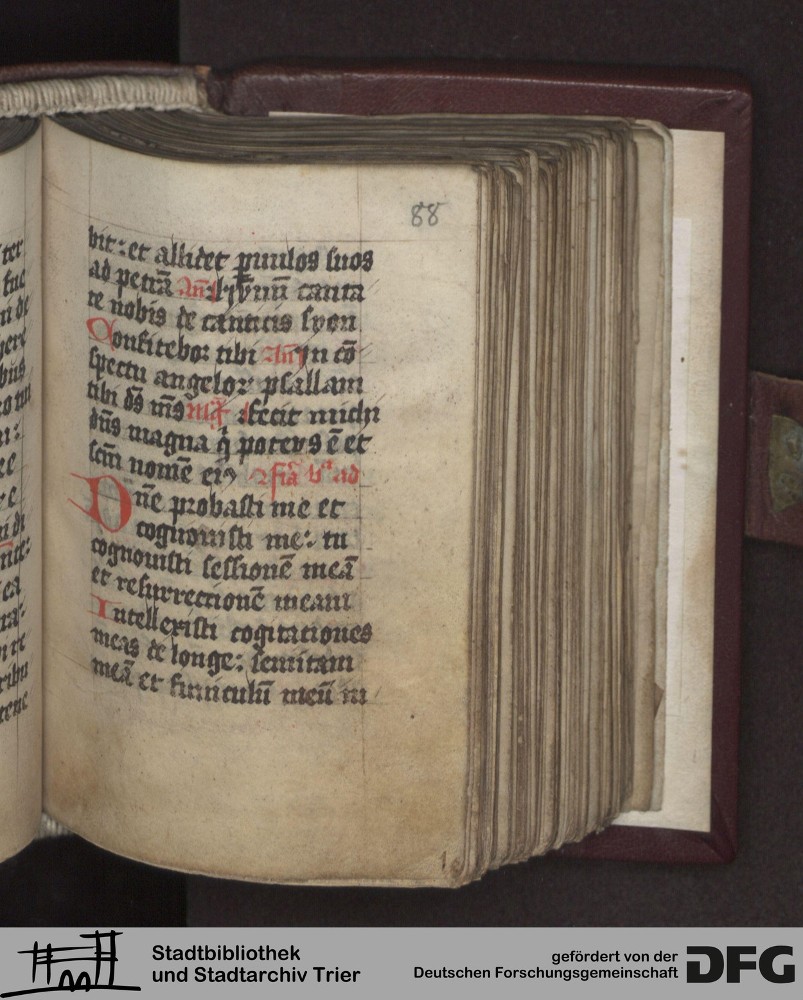 88
bit: et allidet puulos suos
ad petrā Añ hymnū canta
te nobis de canticis syon
Confitebor tibi Añ In cō
spectu angelor psallam
tibi ds ms mgf fecit michi
dn̄s magna q̄ potens ē et
scm̄ nomē eiꝰ fia ad
Dn̄e probasti me et
cognouisti me: tu
cognouisti sessionē meā
et resurrectionē meam
Intellexisti cogitationes
meas de longe: semitam
meā et funiculū meū in
1
Stadtbibliothek
und Stadtarchiv Trier
gefördert von der
Deutschen Forschungsgemeinschaft
DFG